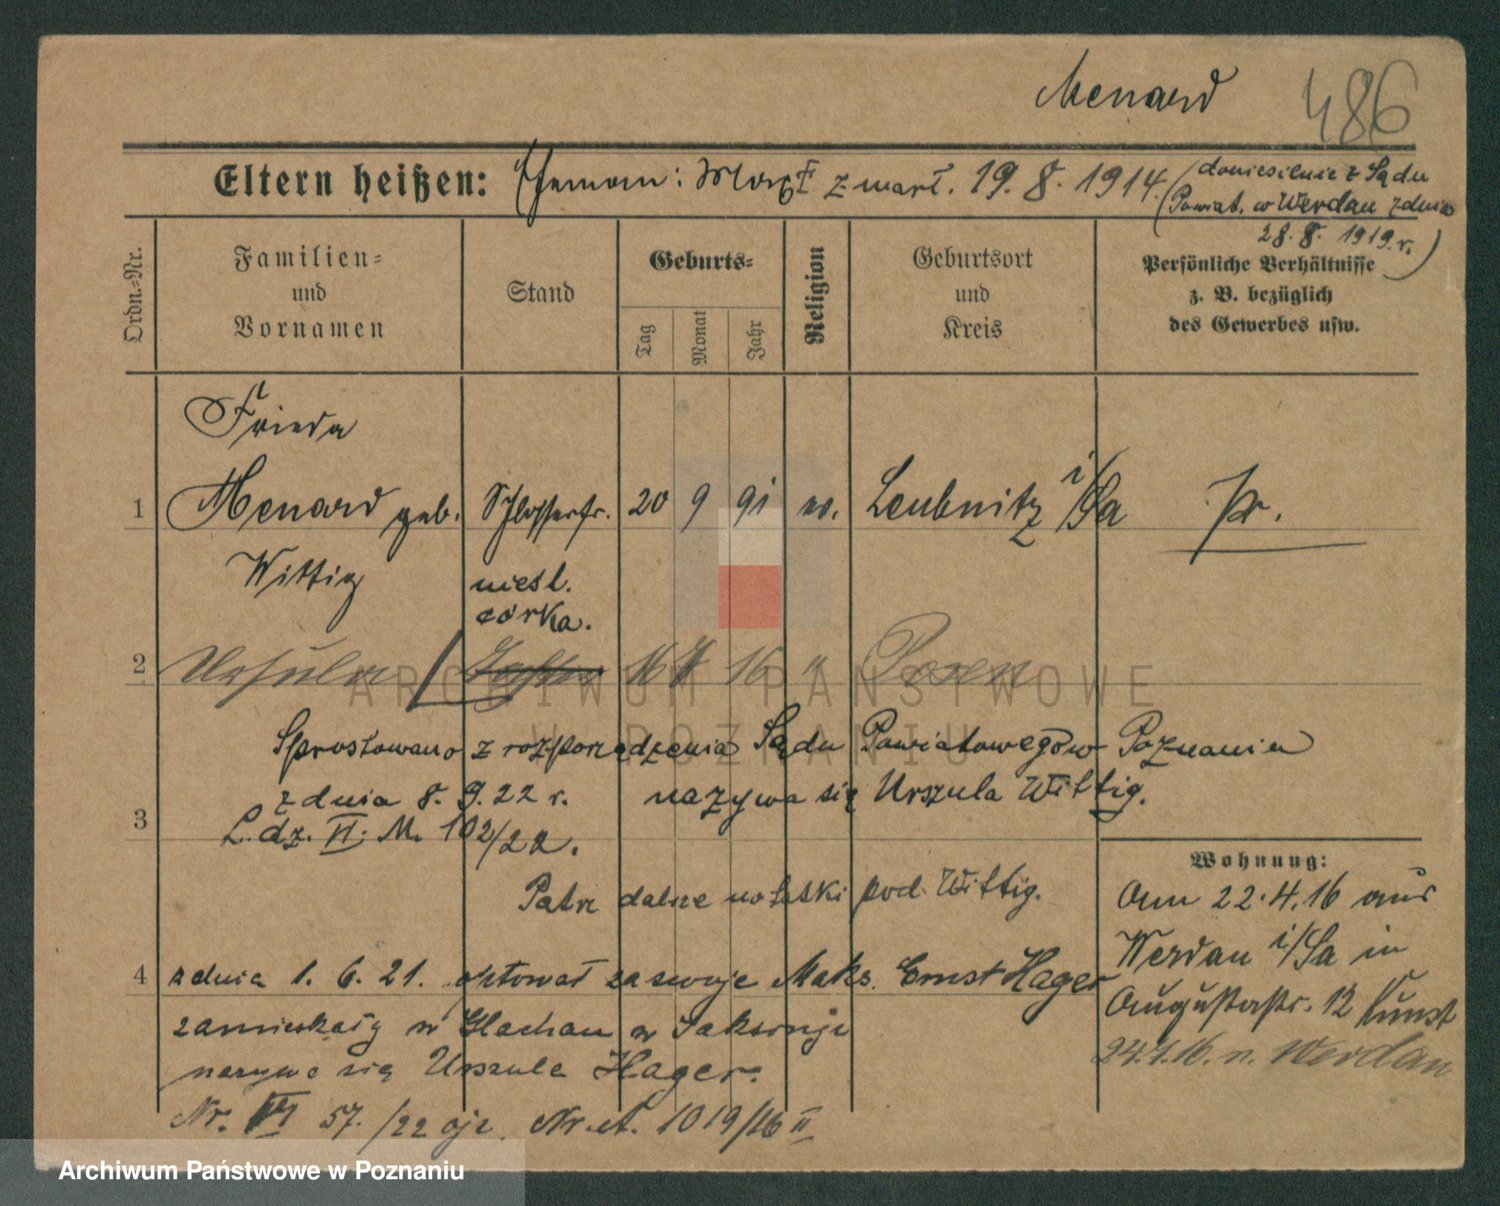 Menard 486
Eltern heißen: Ehemann: Max zmarł. 19. 8. 1914. (doniesienie z Sądu
Powiat. w Werdau z dnia
28. 8. 1919. r.)
Ordn.-Nr.
Familien-
und
Vornamen
Stand
Geburts-
Tag
Monat
Jahr
Religion
Geburtsort
und
Kreis
Persönliche Verhältnisse
z. B. bezüglich
des Gewerbes usw.
Frieda
1 Menard geb. Schlosserfr. 20 9 91 ev. Leubnitz i/Sa Pr.
Wittig
nieśl.
córka.
2 Ursula 16 16 " Posen
Sprostowano z rozporządzenia Sądu Powiatowego w Poznaniu
z dnia 8. 9. 22 r. nazywa się Urszula Wittig.
3 L. dz. VI. M. 102/22.
Patrz dalsze notatki pod Wittig.
Wohnung:
Am 22.4.16 aus
Werdau i/Sa in
Augustastr. 12
24.7.16. n. Werdau
4 z dnia 1. 6. 21. optował za swoje Maks. Ernst Hager
zamieszkały w Glachau w Saksonji
nazywa się Urszula Hager.
Nr. VI 57./22 Nr. 1019/16 II
ARCHIWUM PAŃSTWOWE
W POZNANIU
Archiwum Państwowe w Poznaniu